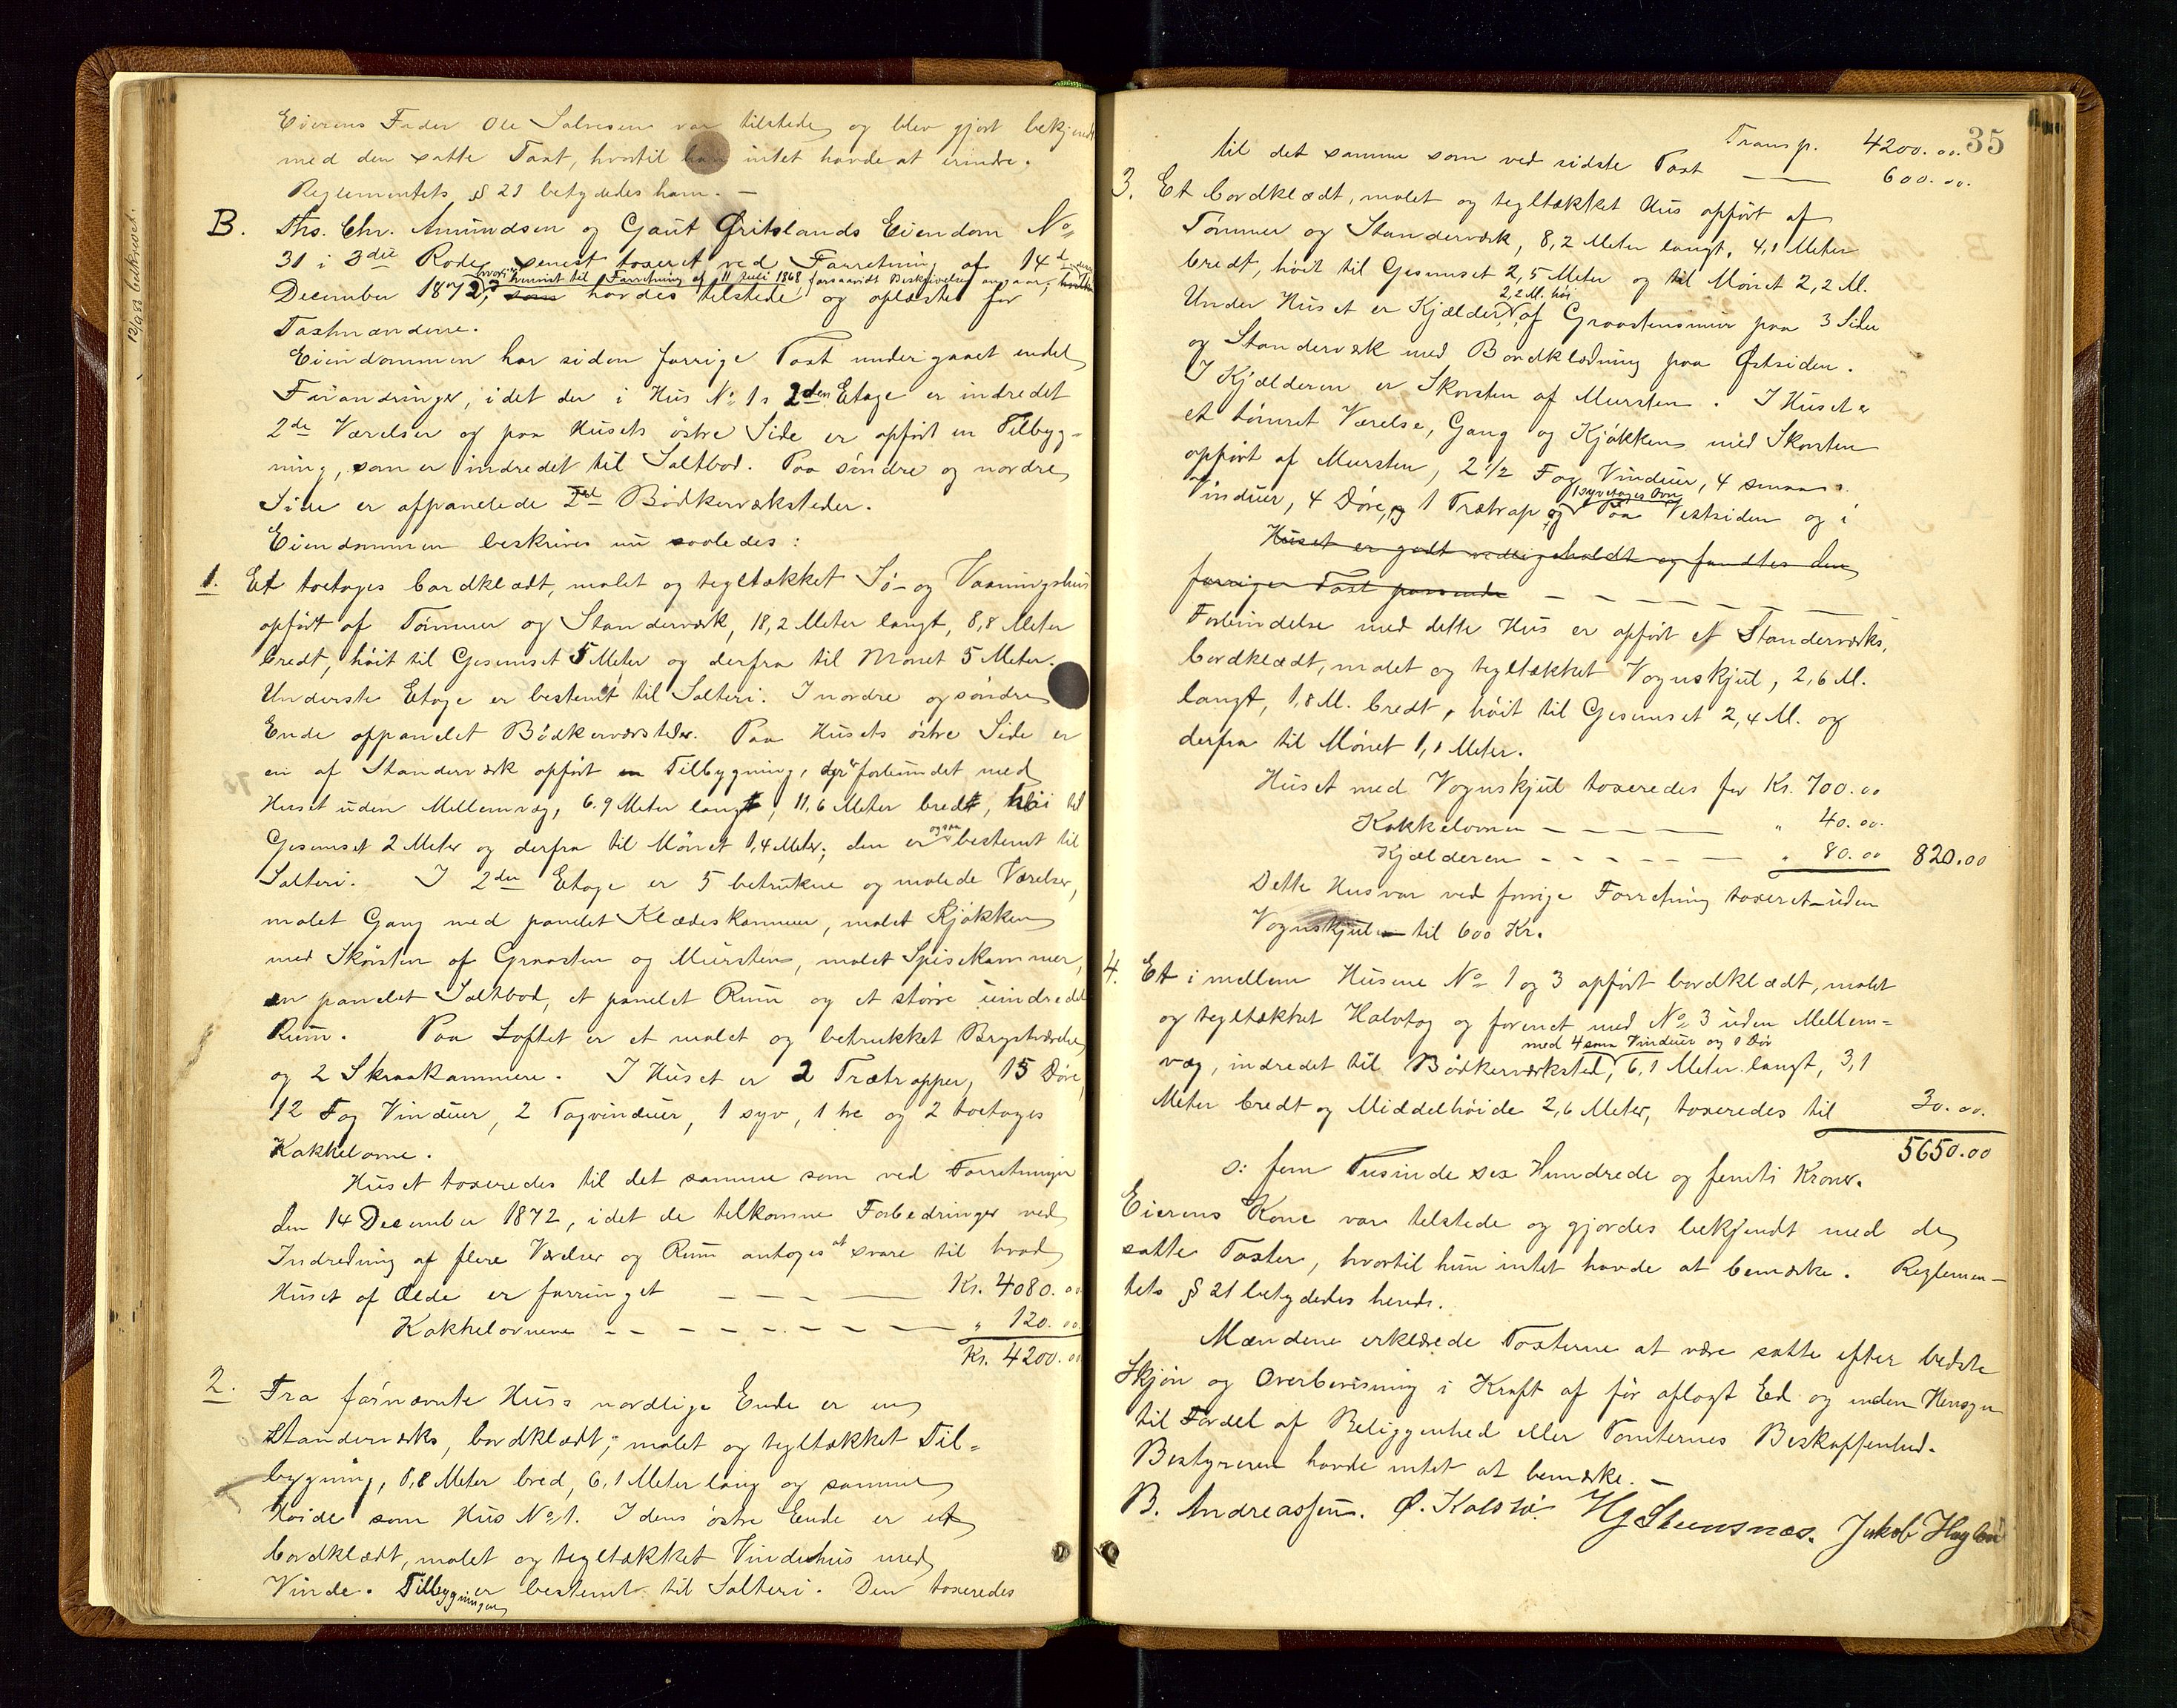 Eierens Fader Ole Salvesen var tilstede og blev gjort bekjendt
med den satte Taxt, hvortil han intet havde at erindre.
Reglementets § 21 betydedes ham. —
B. Ths. Chr. Amundsen og Gaut Øritslands Eiendom No
31 i 3die Rode, senest taxeret ved Forretning af 14de
hvori henvist til Forretning af 11 Juli 1868, forsaavidt Beskrivelsen angaar,
December 1872, som havdes tilstede og oplæstes for
Taxtmændene.
Eiendommen har siden forrige Taxt undergaaet endel
Forandringer, idet der i Hus No 1s 2den Etage er indredet
2de Værelser og paa Husets østre Side er opført en Tilbyg-
ning, som er indredet til Saltbod. Paa søndre og nordre
Side er afpanelede 2de Bødkerværksteder.
Eiendommen beskrives nu saaledes:
1. Et toetages bordklædt, malet og tegltækket Sø- og Vaaningshus
opført af Tømmer og Standerværk, 18,2 Meter langt, 8,8 Meter
bredt, høit til Gesimset 5 Meter og derfra til Mønet 5 Meter.
Underste Etage er bestemt til Salteri. I nordre og søndre
Ende afpanelet Bødkerværksteder. Paa Husets østre Side er
en af Standerværk opført Tilbygning, der forbundet med
Huset uden Mellemvæg, 6.9 Meter lang, 11,6 Meter bred, høi til
Gesimset 2 Meter og derfra til Mønet 1,4 Meter; den er ogsaa bestemt til
Salteri. I 2den Etage er 5 betrukne og malede Værelser,
malet Gang med panelet Klædeskammer, malet Kjøkken
med Skorsten af Graasten og Mursten, malet Spisekammer,
en panelet Saltbod, et panelet Rum og et større uindredet
Rum. Paa Loftet er et malet og betrukket Brystværelse
og 2 Skraakammere. I Huset er 2 Trætrapper, 15 Døre,
12 Fag Vinduer, 2 Tagvinduer, 1 syv, 1 tre og 2 toetages
Kakkelovne.
Huset taxeredes til det samme som ved Forretningen
den 14 December 1872, idet de tilkomne Forbedringer ved
Indredning af flere Værelser og Rum antoges at svare til hvad
Huset af Ælde er forringet — — — — Kr. 4080.00
Kakkelovnene — — — — — — " 120.00
Kr. 4200.00
2. Fra førnævnte Hus's nordlige Ende er en
Standerværks, bordklædt, malet og tegltækket Til-
bygning, 8,8 Meter bred, 6,1 Meter lang og samme
Høide som Hus No 1. I dens østre Ende er et
bordklædt, malet og tegltækket Vindehus med
Vinde. Tilbygningen er bestemt til Salteri. Den taxeredes
35
Transp. 4200.00
til det samme som ved sidste Taxt — — 600.00.
3. Et bordklædt, malet og tegltækket Hus opført af
Tømmer og Standerværk, 8,2 Meter langt, 4,1 Meter
bredt, høit til Gesimset 2,5 Meter og til Mønet 2,2 M.
2,2 M. høi
Under Huset er Kjælder af Graastensmur paa 3 Sider
og Standerværk med Bordklædning paa Østsiden.
I Kjælderen er Skorsten af Mursten. I Huset er
et tømret Værelse, Gang og Kjøkken med Skorsten
opført af Mursten, 2 1/2 Fag Vinduer, 4 smaa
1 syvetages Ovn
Vinduer, 4 Døre, og 1 Trætrap og Paa Vestsiden og i
Huset er godt vedligeholdt og fandtes den
forrige Taxt passende — — — — — — —
Forbindelse med dette Hus er opført et Standerværks,
bordklædt, malet og tegltækket Vognskjul, 2,6 M.
langt, 1,8 M. bredt, høit til Gesimset 2,4 M. og
derfra til Mønet 1,1 Meter.
Huset med Vognskjul taxeredes for Kr. 700.00
Kakkelovnen — — — — — " 40.00.
Kjælderen — — — — — " 80.00 820.00
Dette Hus var ved forrige Forretning taxeret - uden
Vognskjul - til 600 Kr.
4. Et imellem Husene No 1 og 3 opført bordklædt, malet
og tegltækket Halvtag og forenet med No 3 uden Mellem-
med 4 smaa Vinduer og 1 Dør
væg, indredet til Bødkerværksted, 6,1 Meter langt, 3,1
Meter bredt og Middelhøide 2,6 Meter, taxeredes til 30.00.
5650.00
o: fem Tusinde sex Hundrede og femti Kroner.
Eierens Kone var tilstede og gjordes bekjendt med de
satte Taxter, hvortil hun intet havde at bemærke. Reglemen-
tets § 21 betydedes hende.
Mændene erklærede Taxterne at være satte efter bedste
Skjøn og Overbevisning i Kraft af før aflagt Ed og uden Hensyn
til Fordel af Beliggenhed eller Tomternes Beskaffenhed.
Bestyreren havde intet at bemærke. —
B. Andreassen. Ø. Kalstø. HJ Steensnæs. Jakob